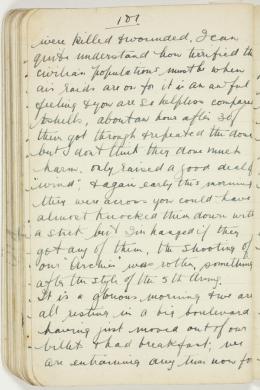 101
were killed & wounded. I can
quite understand how terrified the
civilian populations must be when
air raids are on for it is an awful
feeling & you are so helpless compared
to shells, about an hour after 3 of
them got through & repeated the dose
but I don't think they done much
harm, only raised a good deal of
"wind", & again early this morning
they were across you could have
almost knocked them down with
a stick but I'm hanged if they
got any of them, the shooting of
our "Archies" was rotten, something
after the style of the 5th Army.
It is a glorious morning & we are
all resting in a big boulevard
having just moved out of our
billet & had breakfast, we
are entraining any time now for